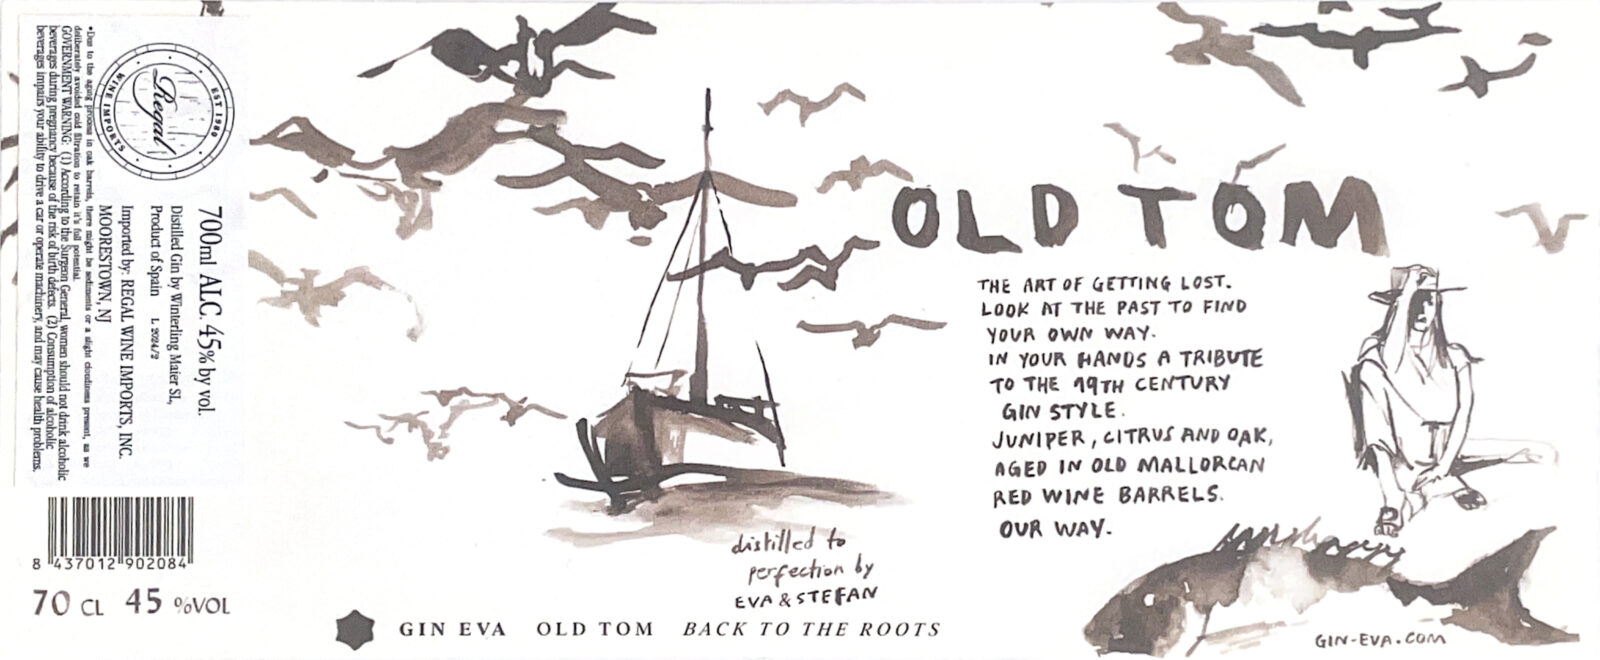 Regal
EST 1980
WINE IMPORTS
700ml ALC. 45% by vol.
Distilled Gin by Winterling Maier SL,
Product of Spain L 2024/2
Imported by: REGAL WINE IMPORTS, INC.
MOORESTOWN, NJ
*Due to the aging process in oak barrels, there might be sediments or a slight cloudiness present, as we
deliberately avoided cold filtration to retain it's full potential.
GOVERNMENT WARNING: (1) According to the Surgeon General, women should not drink alcoholic
beverages during pregnancy because of the risk of birth defects. (2) Consumption of alcoholic
beverages impairs your ability to drive a car or operate machinery, and may cause health problems.
8 437012 902084
70 CL 45 %VOL
distilled to
perfection by
EVA & STEFAN
GIN EVA OLD TOM BACK TO THE ROOTS
OLD TOM
THE ART OF GETTING LOST.
LOOK AT THE PAST TO FIND
YOUR OWN WAY.
IN YOUR HANDS A TRIBUTE
TO THE 19TH CENTURY
GIN STYLE.
JUNIPER, CITRUS AND OAK,
AGED IN OLD MALLORCAN
RED WINE BARRELS.
OUR WAY.
GIN-EVA.COM